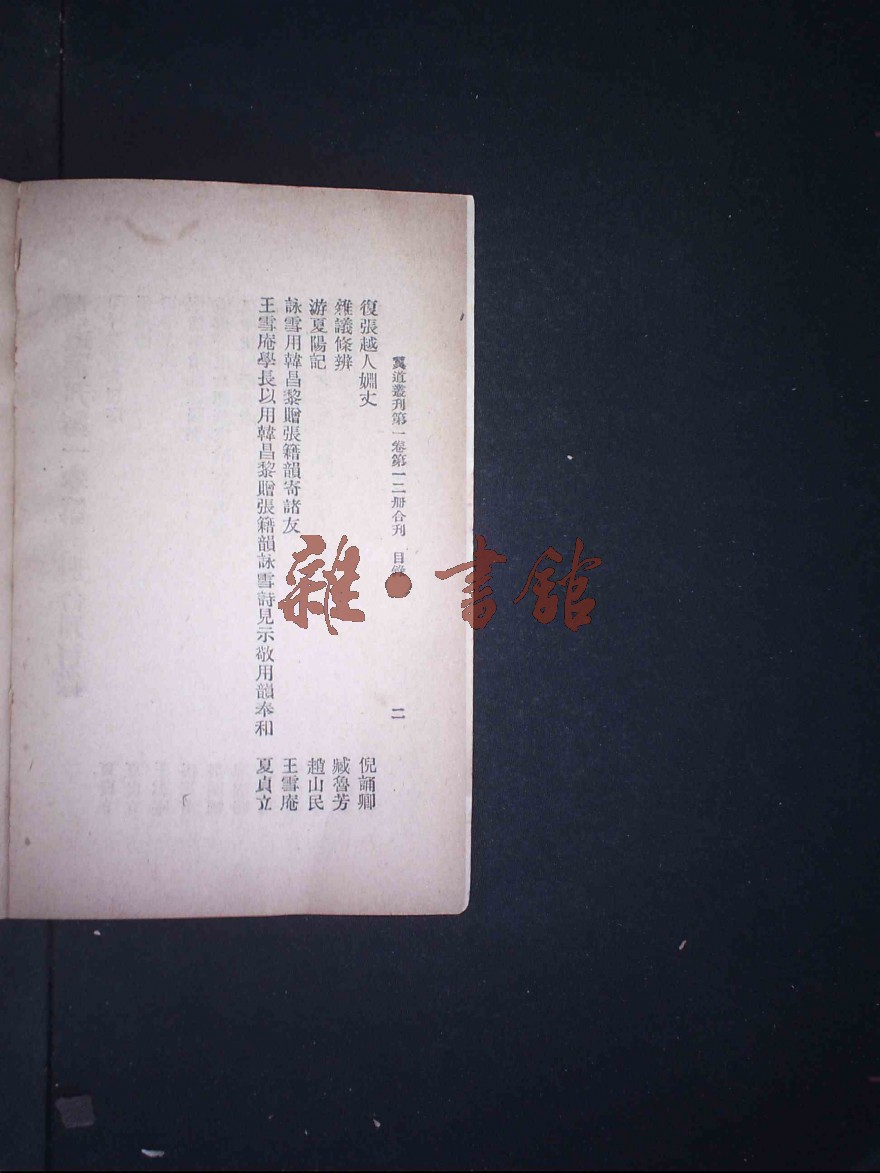 翼道叢刊第一卷第一二册合刊 目錄 二
復張越人婣丈 倪誦卿
雜議條辨 臧魯芳
游夏陽記 趙山民
詠雪用韓昌黎贈張籍韻寄諸友 王雪庵
王雪庵學長以用韓昌黎贈張籍韻詠雪詩見示敬用韻奉和 夏貞立
雜·書館